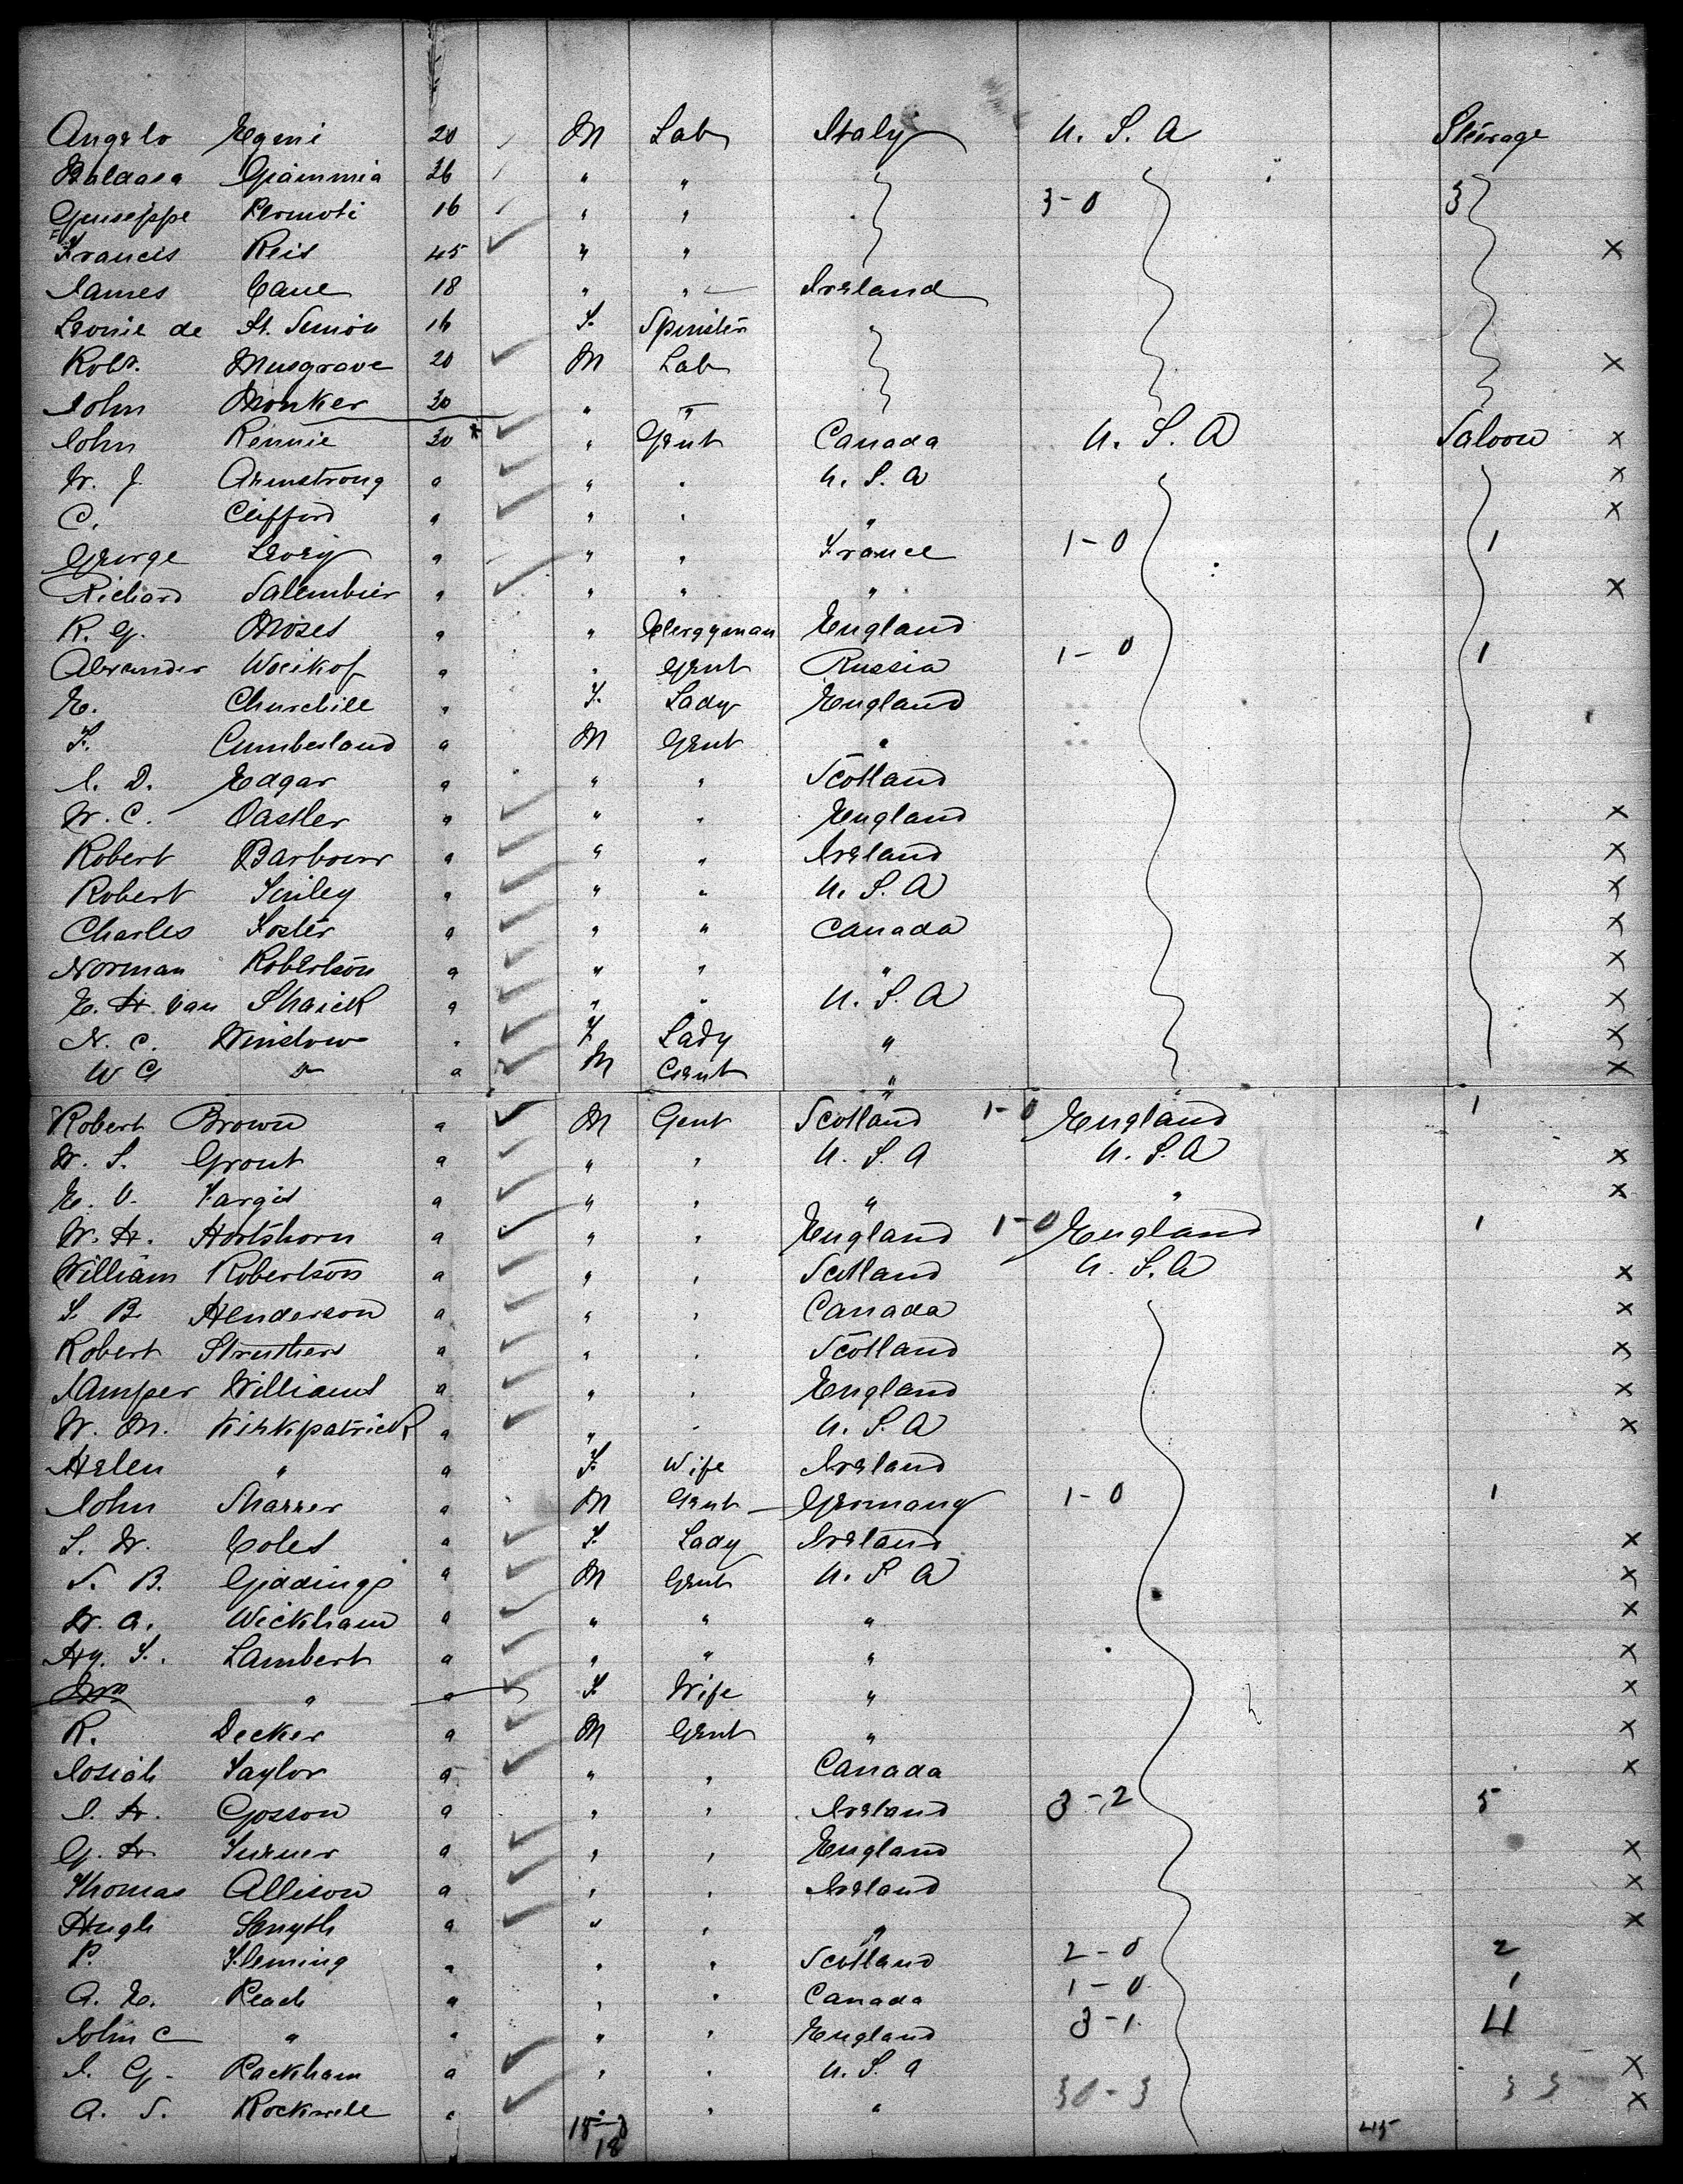 Angelo Egeni 20 M Lab Italy U. S. A Steerage
Baldasa Giammia 26 " "
Guiseppe Permoti 16 " " 3-0 3
Francis Reis 45 " " x
James Cane 18 " " Ireland
Leonie de St. Simon 16 F. Spinster
Robt. Musgrave 20 M Lab x
John Monker 30 " "
John Rennie 30 " Gent Canada U. S. A Saloon x
W. J. Armstrong a " " U. S. A x
C. Clifford a " " " x
George Levey a " " France 1-0 1
Richard Salembier a " " " x
R. G. Moses a " Clergyman England
Alexander Woeikof a " Gent Russia 1-0 1
E. Churchill a F. Lady England
F. Cumberland a M Gent "
J. D. Edgar a " " Scotland
W. C. Oastler a " " England x
Robert Barbour a " " Ireland x
Robert Finley a " " U. S. A x
Charles Foster a " " Canada x
Norman Robertson a " " " x
E. H. van Shaick a " " U. S. A x
N. C. Winslow " F. Lady " x
W G Do a M Gent " x
Robert Brown a M Gent Scotland 1-0 England 1
W. S. Grout a " " U. S. A U. S. A x
E. V. Fargis a " " " " x
W. H. Hartshorn a " " England 1-0 England 1
William Robertson a " " Scotland U. S. A x
S. B. Henderson a " " Canada x
Robert Struthers a " " Scotland x
Jamper Williams a " " England x
W. M. Kirkpatrick a " " U. S. A x
Helen " a F. Wife Ireland
John Sharrer a M Gent Germany 1-0 1
S. W. Coles a F. Lady Ireland x
S. B. Giddings a M Gent U. S. A x
W. A. Wickham a " " " x
Hy. S. Lambert a " " " x
Mrs " a F. Wife " x
R. Decker a M Gent " x
Josiah Taylor a " " Canada x
J. H. Gosson a " " Ireland 3-2 5
G. H. Turner a " " England x
Thomas Allison a " " Ireland x
Hugh Smyth a " " " x
P. Fleming a " " Scotland 2-0 2
A. E. Peach a " " Canada 1-0 1
John C " a " " England 3-1 4
J. G. Rackham a " " U. S. A x
A. S. Rockwell a " " 30-3 33 x
18 45